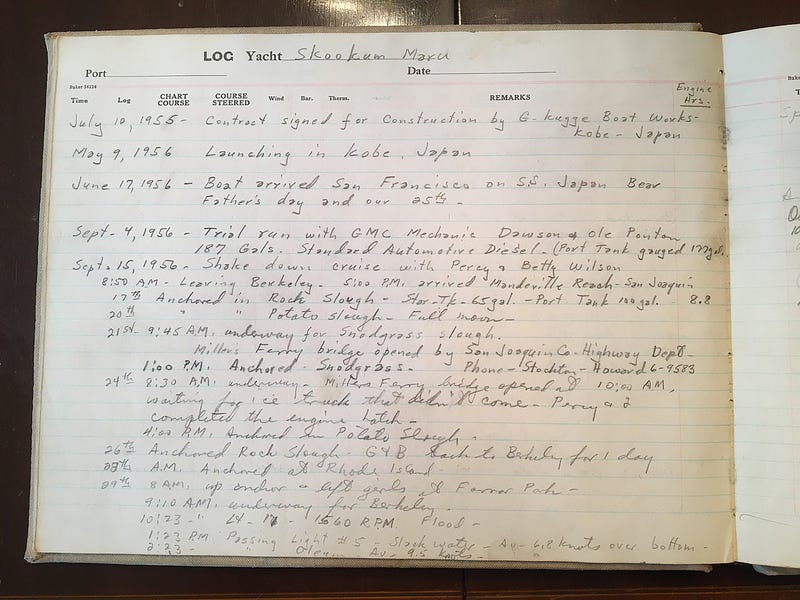 LOG Yacht Skookum Maru
Port Date
Baker 54124
Time Log CHART COURSE COURSE STEERED Wind Bar. Therm. REMARKS Engine Hrs.
July 10, 1955 - Contract signed for Construction by G- Boat Works-
Kobe - Japan
May 9, 1956 Launching in Kobe, Japan
June 17, 1956 - Boat arrived San Francisco on S.S. Japan Bear
Father's day and our 25th -
Sept. 4, 1956 - Trial run with GMC Mechanic Dawson & Ole
187 Gals. Standard Automotive Diesel - (Port Tank gauged 177gal.
Sept. 15, 1956 - Shake down cruise with Percy & Betty Wilson
8:50 AM - Leaving Berkeley - 5:00 P.M. arrived Mandeville Reach - San Joaquin
17th Anchored in Rock Slough - Star-Tk-65gal. - Port Tank 100 gal. 8.8
20th " " Potato slough - Full moon -
21st 9:45 A.M. underway for Snodgrass slough.
Millers Ferry bridge opened by San Joaquin Co- Highway Dept-
1:00 P.M. Anchored - Snodgrass - Phone - Stockton - Howard 6-9583
24th 8:30 A.M. underway - Millers Ferry bridge opened at 10:00 AM,
waiting for ice truck that didn't come - Percy & I
completed the engine hatch -
4:00 P.M. Anchored in Potato Slough -
26th Anchored Rock Slough - G & B back to Berkeley for 1 day
28th A.M. Anchored at Rhode Island -
29th 8 A.M. up anchor & left girls at Park -
9:10 A.M. underway for Berkeley.
10:23 - " - 1560 R.P.M. Flood -
1:23 P.M. Passing Light #5 - Slack water - Av- 6.8 knots over bottom -
2:23 - " Oleum Av- 9.5 knots - "